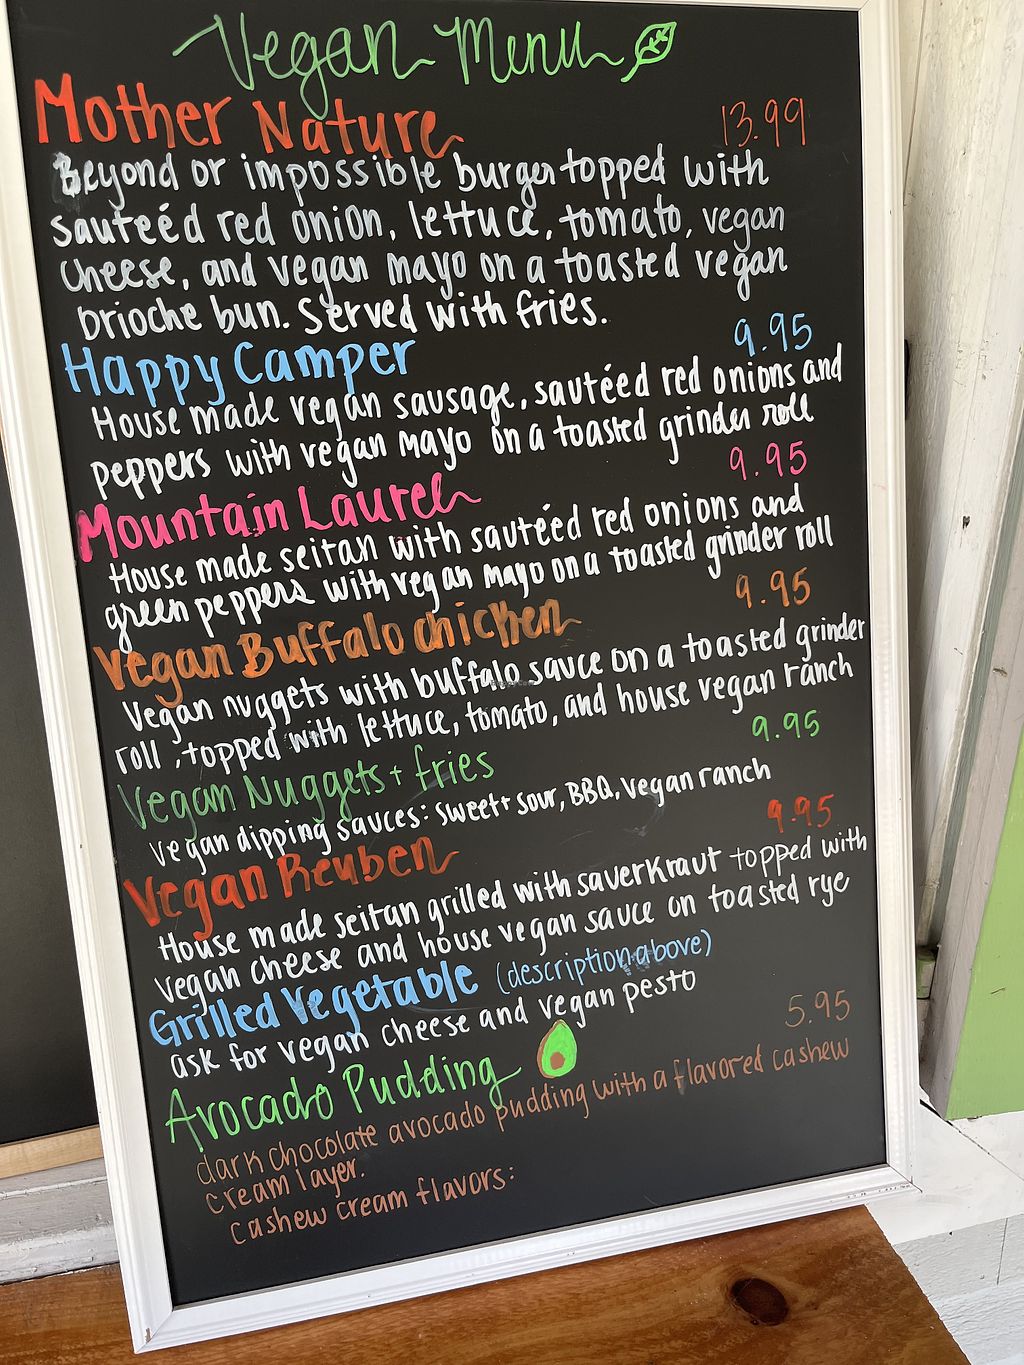 Vegan Menu
Mother Nature 13.99
Beyond or impossible burger topped with
sauteéd red onion, lettuce, tomato, vegan
cheese, and vegan mayo on a toasted vegan
brioche bun. Served with fries.
Happy Camper 9.95
House made vegan sausage, sautéed red onions and
peppers with vegan mayo on a toasted grinder roll
Mountain Laurel 9.95
House made seitan with sautéed red onions and
green peppers with vegan mayo on a toasted grinder roll
Vegan Buffalo chicken 9.95
Vegan nuggets with buffalo sauce on a toasted grinder
roll, topped with lettuce, tomato, and house vegan ranch
Vegan Nuggets + fries 9.95
Vegan dipping sauces: sweet + sour, BBQ, vegan ranch
Vegan Reuben 9.95
House made seitan grilled with saverkraut topped with
vegan cheese and house vegan sauce on toasted rye
Grilled Vegetable (description above)
ask for vegan cheese and vegan pesto
Avocado Pudding 5.95
dark chocolate avocado pudding with a flavored cashew
cream layer.
cashew cream flavors: